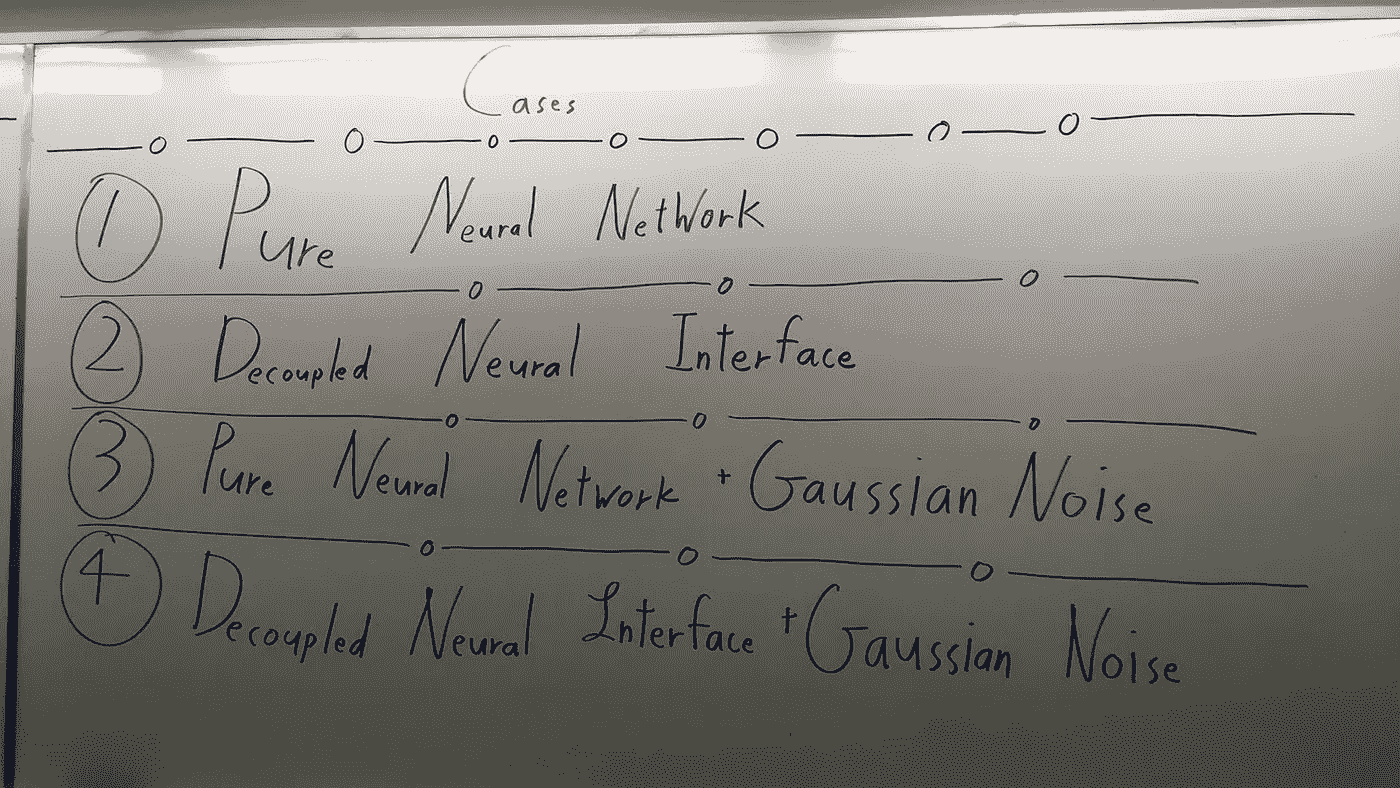 Cases
① Pure Neural Network
② Decoupled Neural Interface
③ Pure Neural Network + Gaussian Noise
④ Decoupled Neural Interface + Gaussian Noise